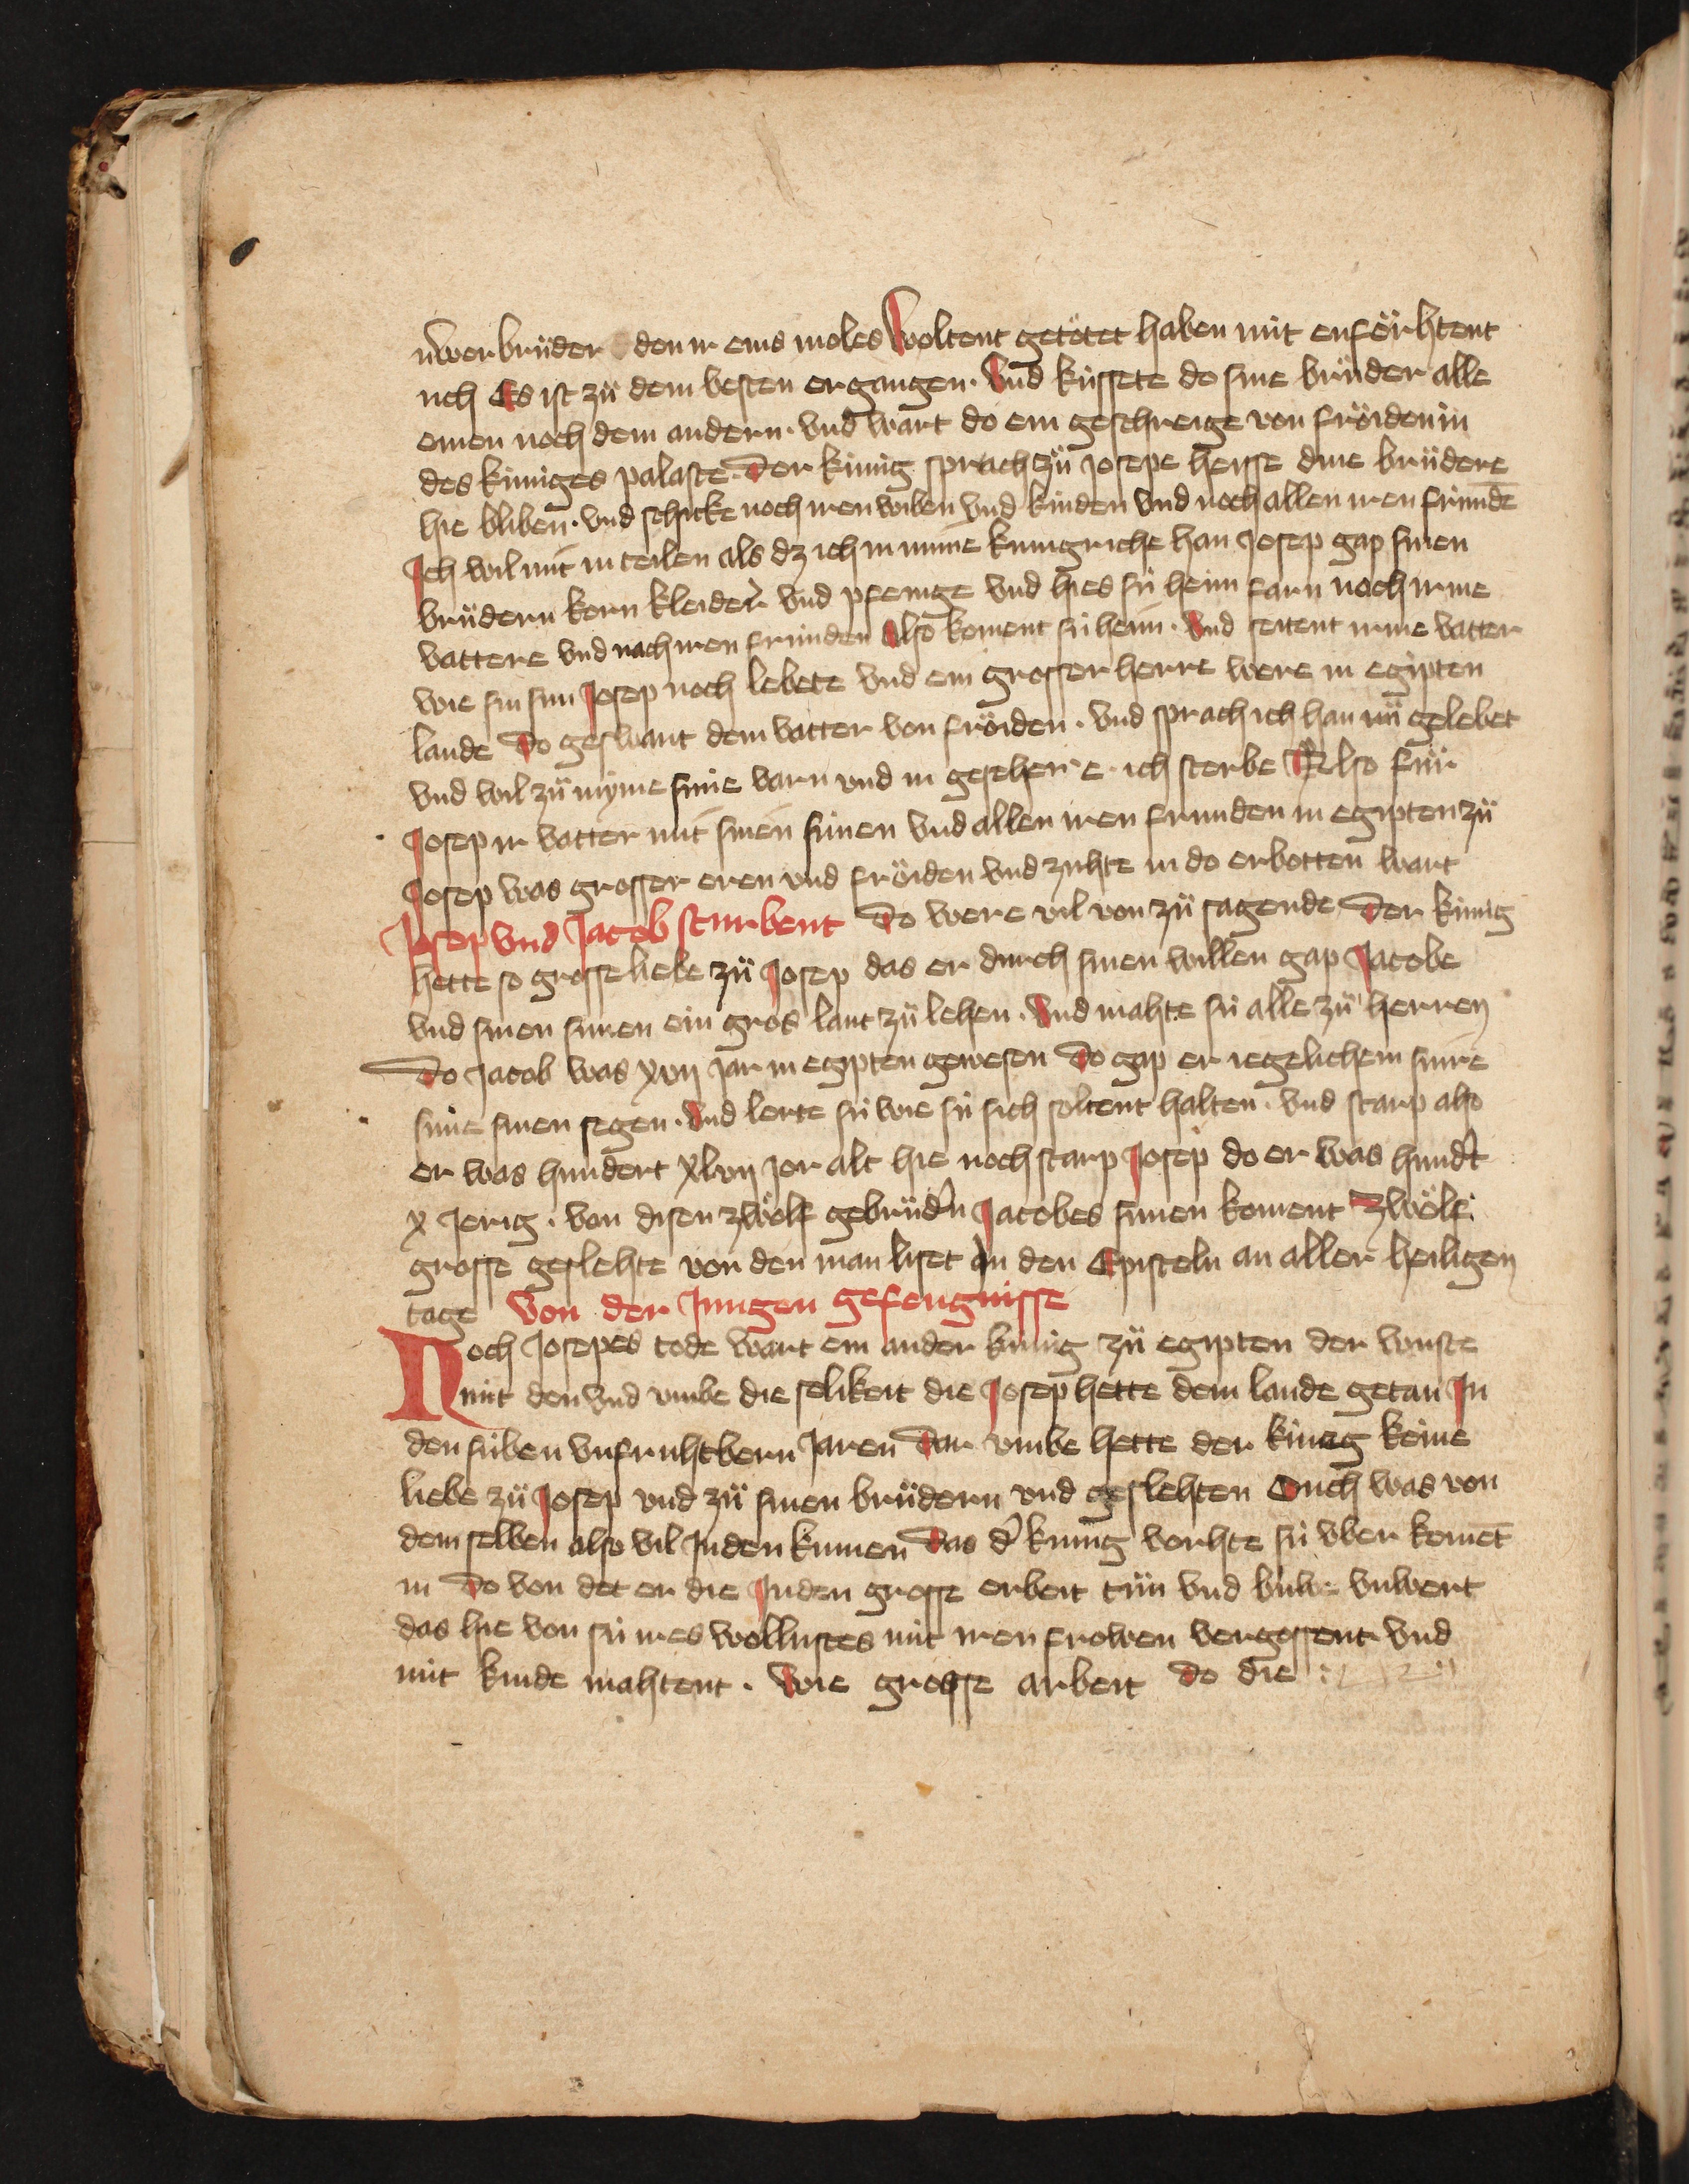 ùwer brůder den ir eins moles woltent getötet haben nüt enförhtent
uch Es ist zů dem besten ergangen. Vnd küssete do sine brůder alle
einen noch dem andern. vnd wart do ein geschreige von fröiden in
des küniges palaste. Der künig sprach zů Josepe heisse dine brůdere
hie bliben. vnd schicke noch iren wiben vnd kinden vnd noch allen iren fründē
Ich wil mit in teilen als dz ich in mime kunigriche han Josep gap sinen
brůdern korn kleider vnd pfenige vnd hies sü heim farn noch irme
vattere vnd nach iren frunden Also koment sü heim. Vnd seitent irme vatter
wie sin sun Josep noch lebete vnd ein grosser herre were in egipten
lande Do geswant dem vatter von fröiden. vnd sprach ich han nů gelebet
vnd wil zů myme sune varn vnd in gesehen e ich sterbe Also für
Josep ir vatter mit sinen sünen vnd allen iren frunden in egipten zů
Josep was grosser eren vnd fröiden vnd zuhte in do erbotten wart
Josep vnd Jacob sturbent Do were vil von zů sagende Der künig
hette so grosse liebe zů Josep das er durch sinen willen gap Jacobe
vnd sinen sunen ein gros lant zů lehen. Vnd mahte sü alle zů herren
Do Jacob was xvij jar in egipten gewesen Do gap er iegelichem sinre
süne sinen segen. Vnd lerte sü wie sü sich soltent halten. vnd starp also
er was hundert xlvij jor alt hie noch starp Josep do er was hund't
x jerig. von disen zwölf gebrůd'n Jacobes sunen koment zwölf
grosse geslehte von den man liset in den Episteln an aller heiligen
tage Von der Jungen gefengnisse
Noch Josepes tode wart ein ander künig zů egipten der wuste
nüt den vnd vmbe die selikeit die Josep hette dem lande getan In
den siben vnfruhtbern Jaren Dar vmbe hette der künig keine
liebe zů Josep vnd zů sinen brůdern vnd geslehten Ouch was von
dem selben also vil Juden kumen Das d' kunig vorhte sü vber komēt
in Do von det er die Juden grosse erbeit tůn vnd buwe vnwert
das hie von sü ires wollustes mit iren frowen vergossent vnd
nüt kinde mahtent. Wie grosse arbeit do die